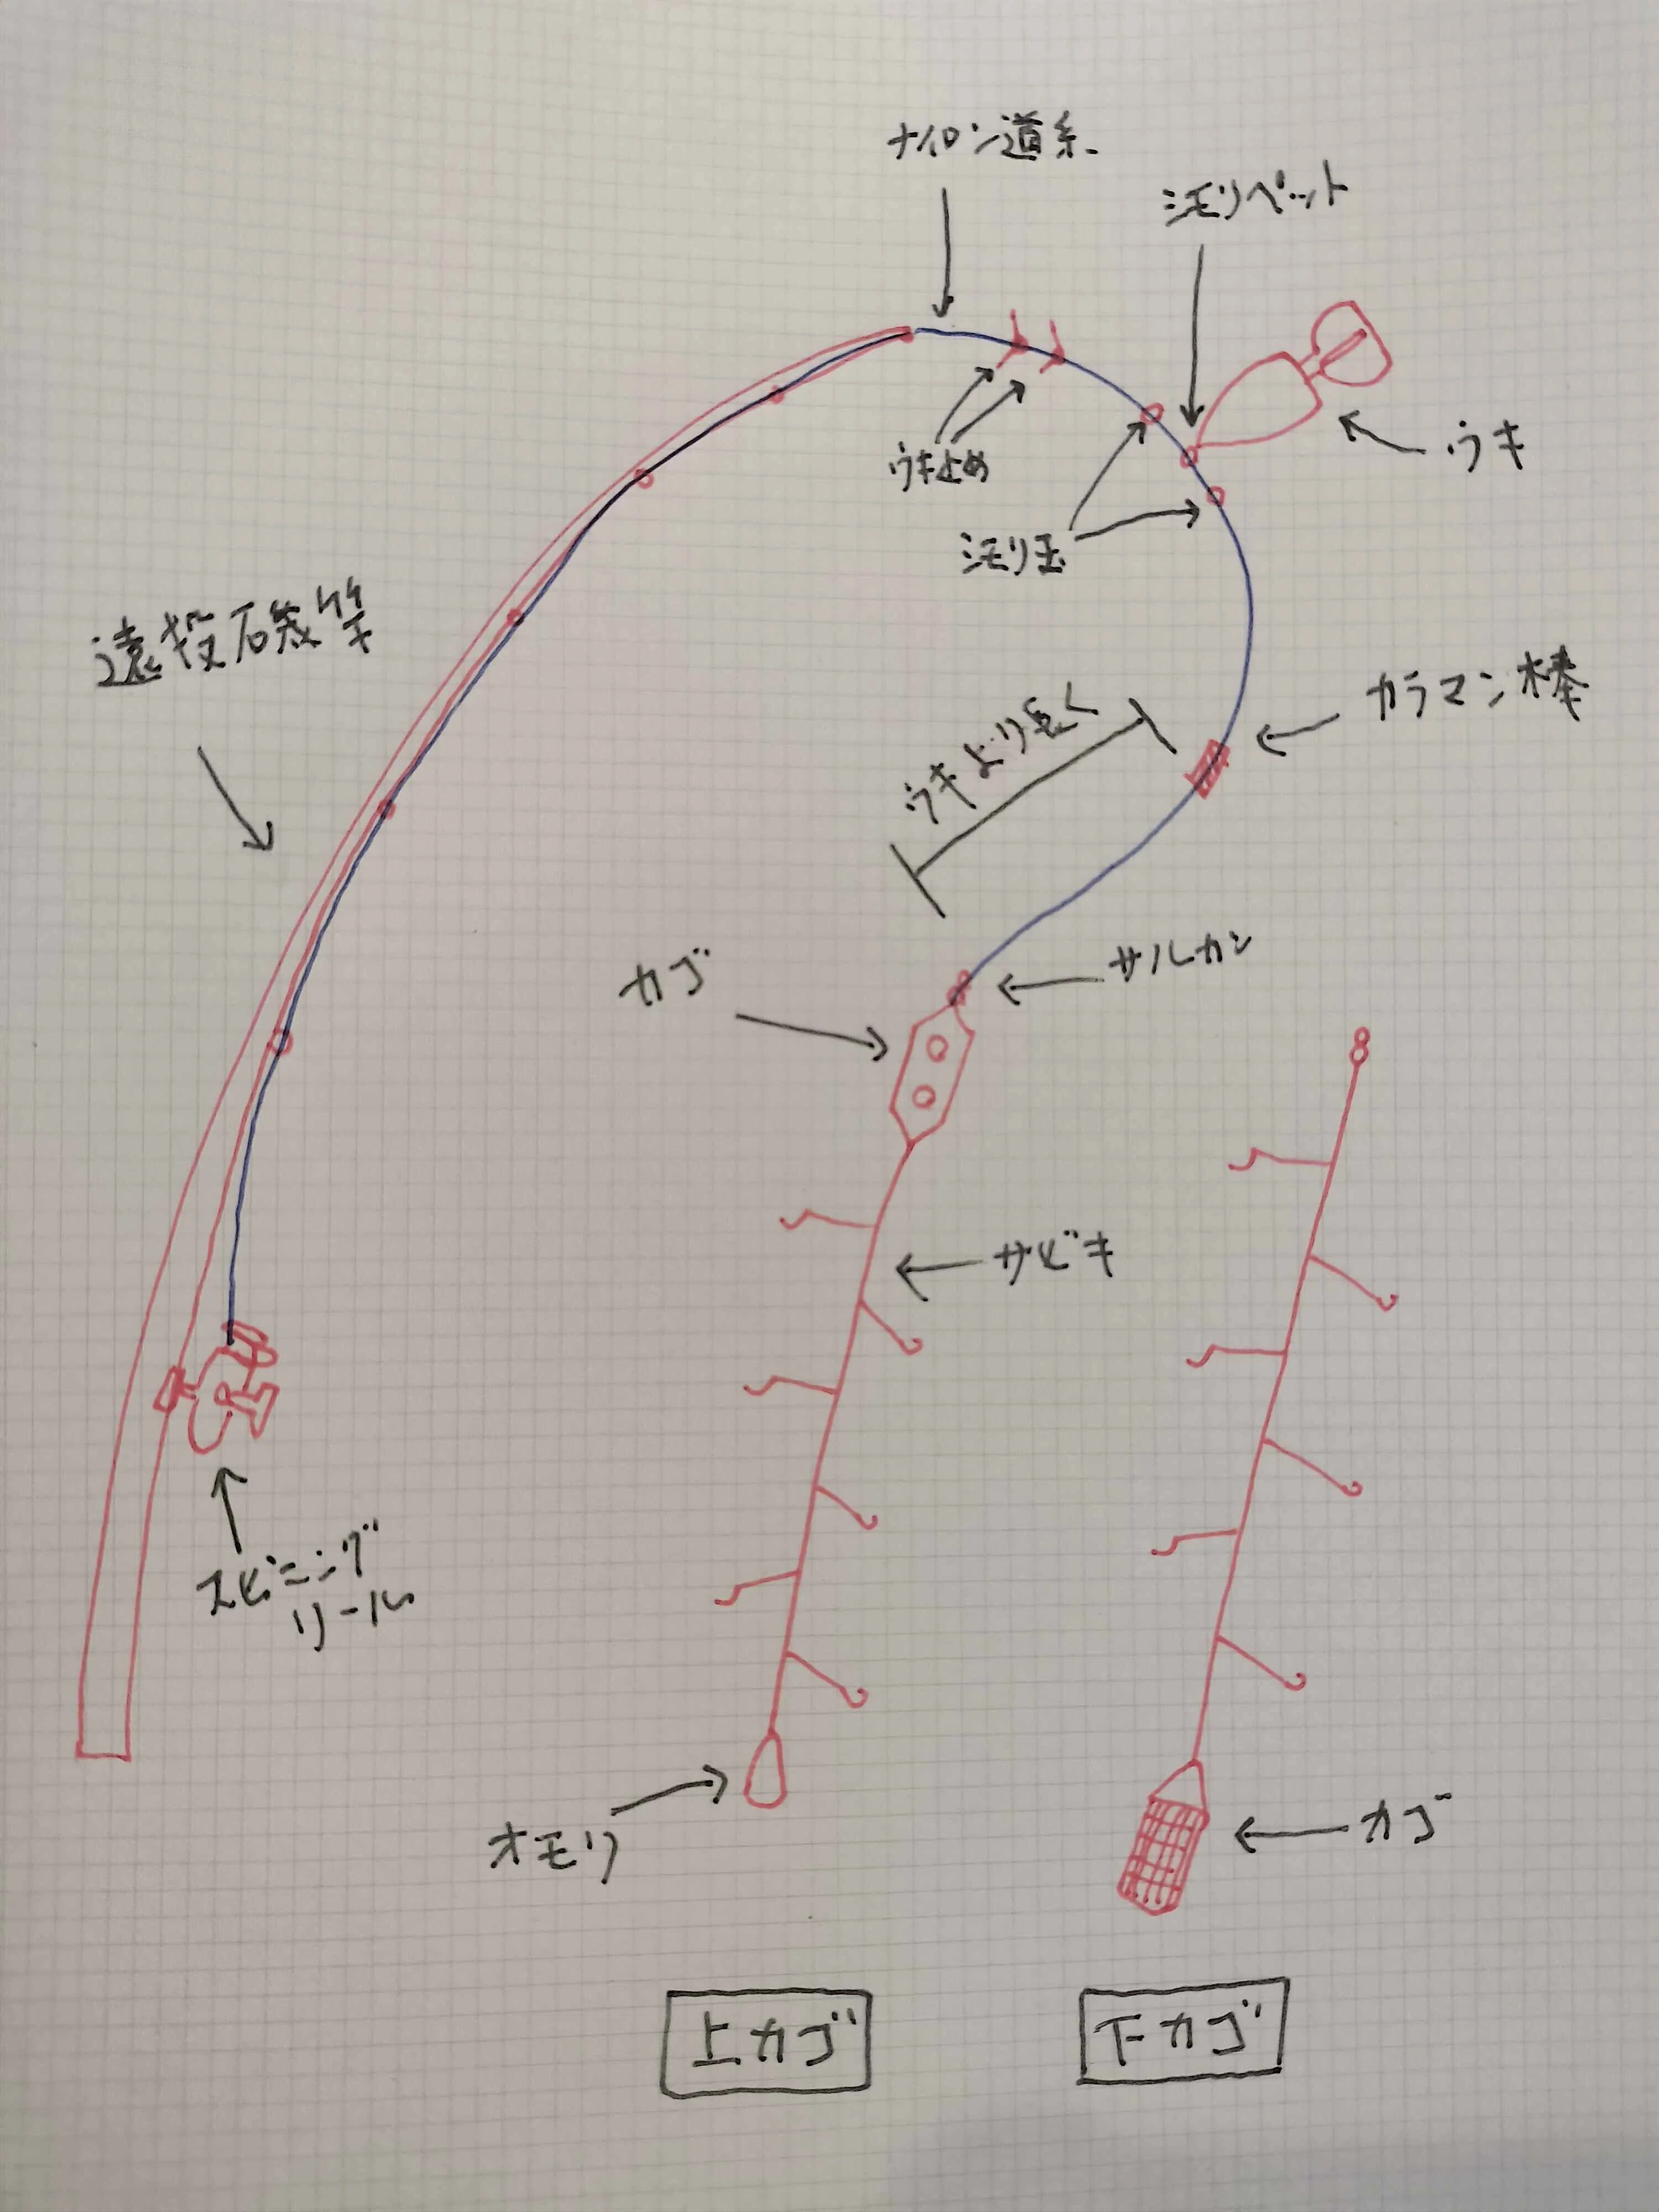 ナイロン道糸
シモリペット
ウキ止め
ウキ
シモリ玉
遠投磯竿
カラマン棒
ウキより長く
サルカン
カゴ
サビキ
スピニング
リール
オモリ
カゴ
上カゴ
下カゴ